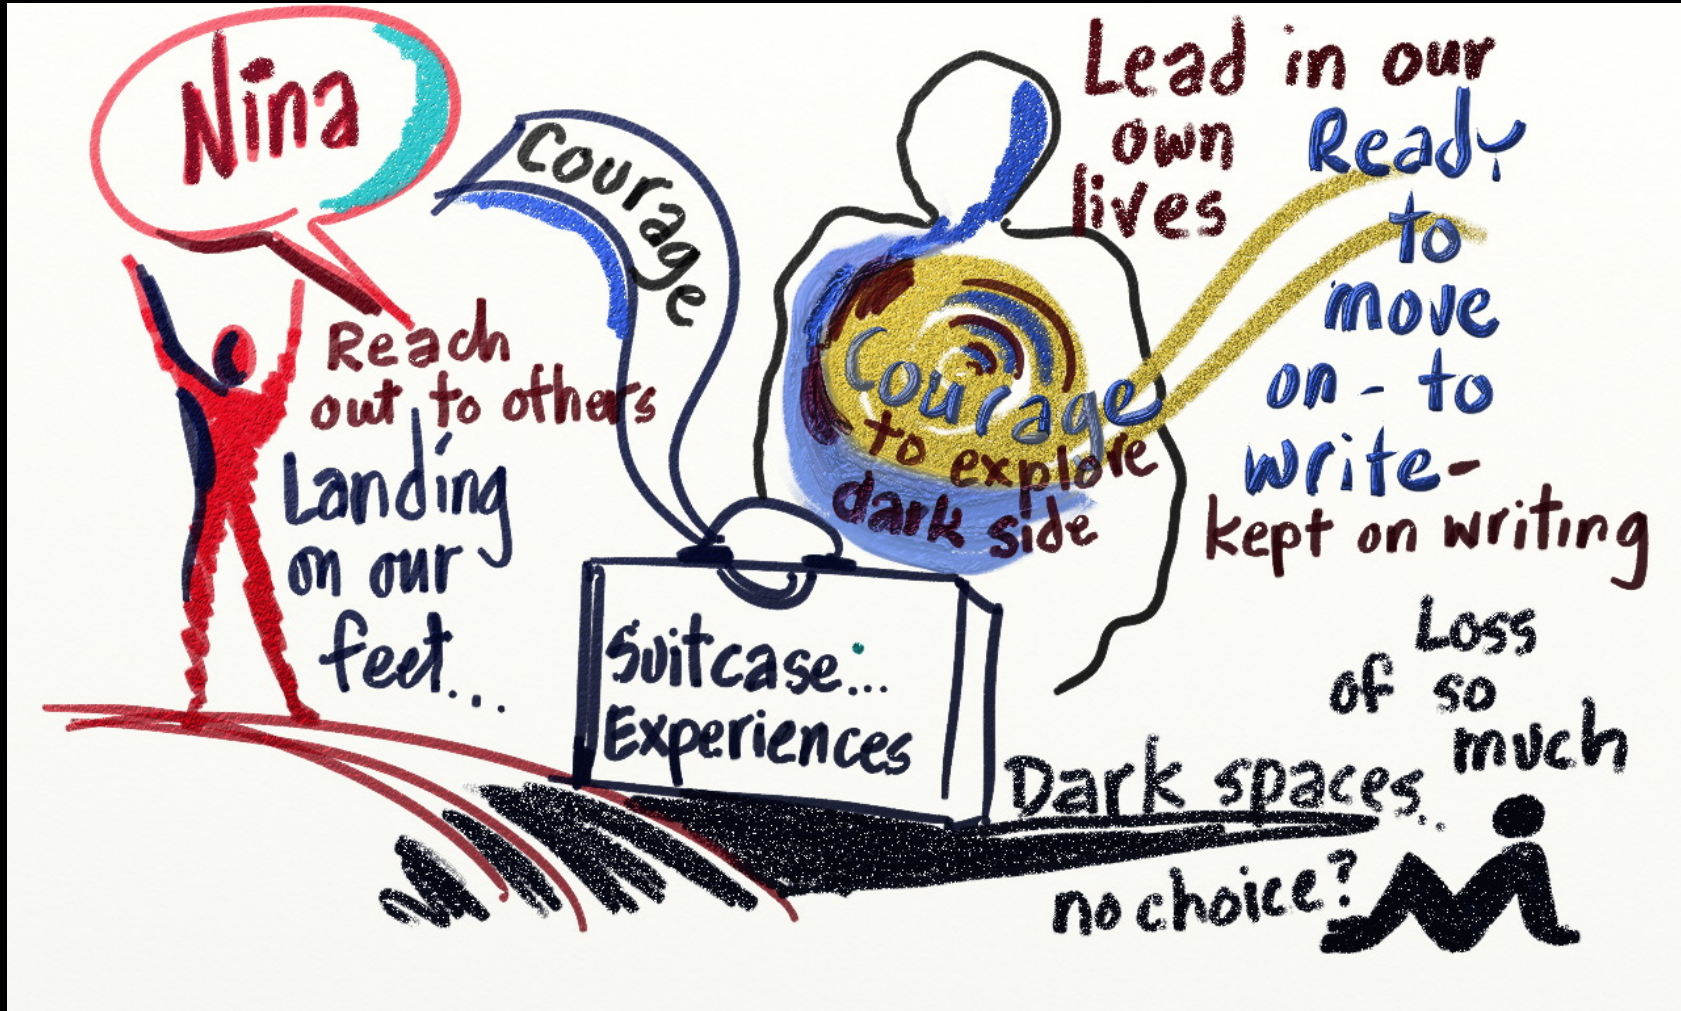 Nina
Courage
Reach
out to others
Landing
on our
feet...
Suitcase...
Experiences
Courage
to explore
dark side
Lead in our
own
lives
Ready
to
move
on - to
write -
kept on writing
Loss
of so
much
Dark spaces...
no choice?